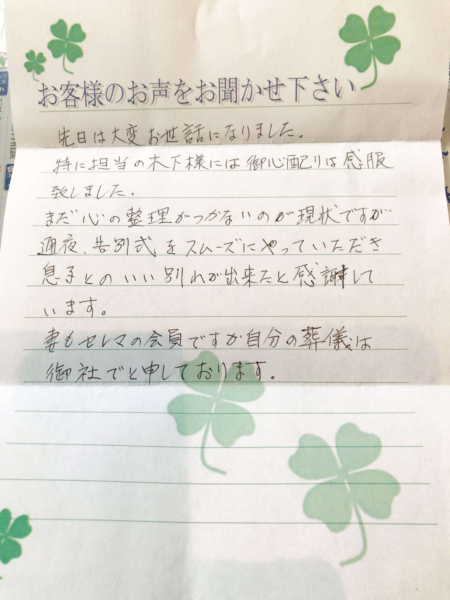 お客様のお声をお聞かせ下さい
先日は大変お世話になりました。
特に担当の木下様には御心配りは感服
致しました.
まだ心の整理がつかないのが現状ですが
通夜、告別式をスムーズにやっていただき
息子とのいい別れが出来たと感謝して
います。
妻もセレマの会員ですが自分の葬儀は
御社でと申しております。